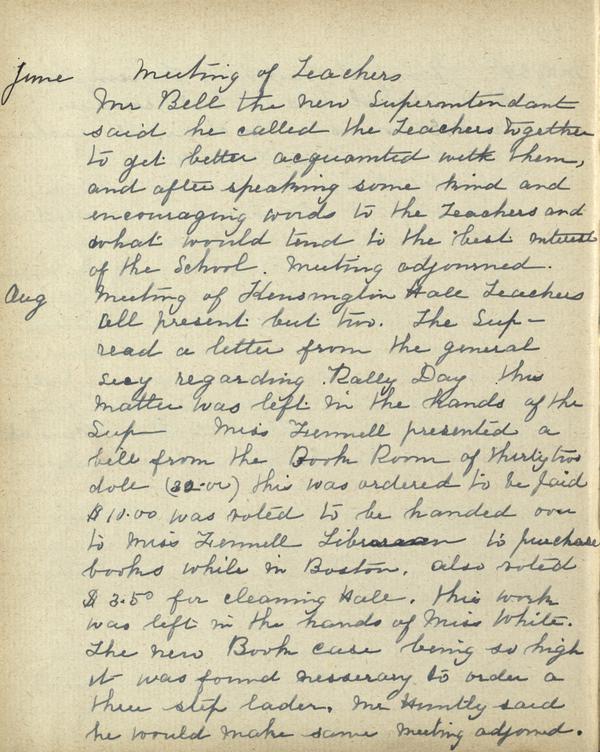 June Meeting of Teachers
Mr Bell the new Superintendant
said he called the Teachers together
to get better acquainted with them,
and after speaking some kind and
encouraging words to the Teachers and
what would tend to the best interest
of the School. Meeting adjourned.
Aug Meeting of Kensington Hall Teachers
all present but two. The Sup-
read a letter from the general
Secy regarding Rally Day this
matter was left in the hands of the
Sup- Miss Fennell presented a
bill from the Book Room of thirty two
doll (32.00) this was ordered to be paid
$10.00 was voted to be handed over
to Miss Fennell Librarian to purchase
books while in Boston. also voted
$3.50 for cleaning Hall. this work
was left in the hands of Miss White.
The new Book case being so high
it was found nesserary to order a
three step lader. Mr Huntly said
he would make same Meeting adjorned.